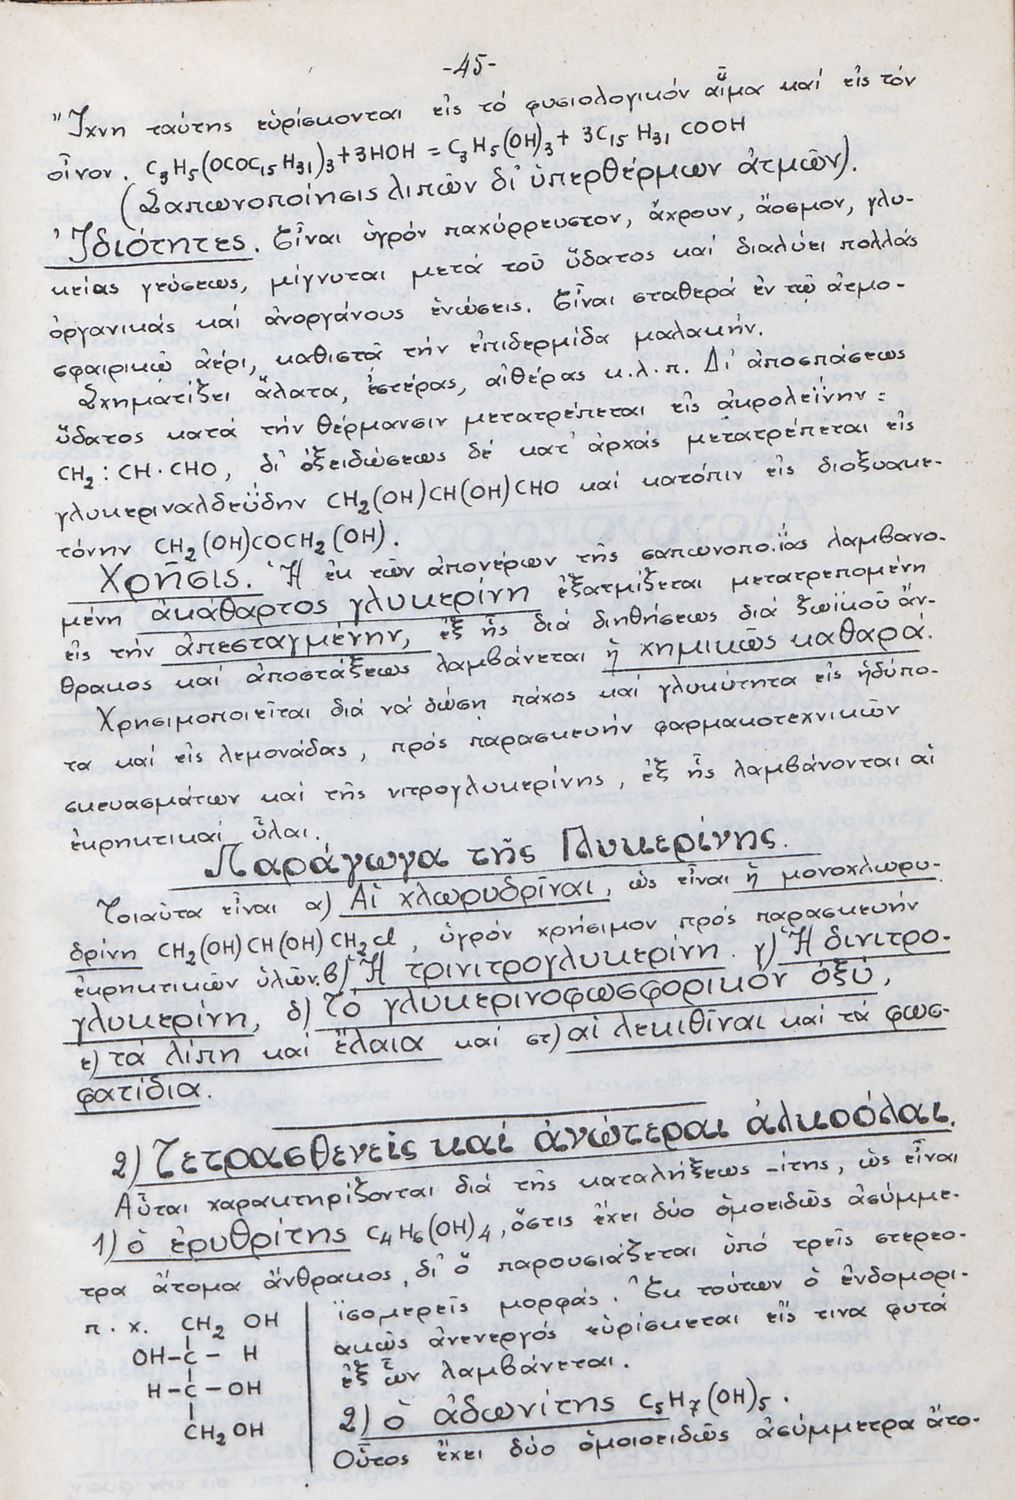 -45-
"Ἴχνη ταύτης εὑρίσκονται εἰς τό φυσιολογικόν αἷμα καί εἰς τόν
οἶνον. C₃H₅(OCOC₁₅H₃₁)₃+3HOH = C₃H₅(OH)₃+ 3C₁₅H₃₁COOH
(Σαπωνοποίησις λιπῶν δι' ὑπερθέρμων ἀτμῶν).
Ἰδιότητες. Εἶναι ὑγρόν παχύρρευστον, ἄχρουν, ἄοσμον, γλυ-
κείας γεύσεως, μίγνυται μετά τοῦ ὕδατος καί διαλύει πολλάς
ὀργανικάς καί ἀνοργάνους ἑνώσεις. Εἶναι σταθερά ἐν τῷ ἀτμο-
σφαιρικῷ ἀέρι, καθιστᾷ τήν ἐπιδερμίδα μαλακήν.
Σχηματίζει ἅλατα, ἐστέρας, αἰθέρας κ.λ.π. Δι' ἀποσπάσεως
ὕδατος κατά τήν θέρμανσιν μετατρέπεται εἰς ἀκρολεΐνην:
CH₂:CH·CHO, δι' ὀξειδώσεως δέ κατ' ἀρχάς μετατρέπεται εἰς
γλυκεριναλδεΰδην CH₂(OH)CH(OH)CHO καί κατόπιν εἰς διοξυακε-
τόνην CH₂(OH)COCH₂(OH).
Χρῆσις. Ἡ ἐκ τῶν ἀπονέρων τῆς σαπωνοποιίας λαμβανο-
μένη ἀκάθαρτος γλυκερίνη ἐξατμίζεται μετατρεπομένη
εἰς τήν ἀπεσταγμένην, ἐξ ἧς διά διηθήσεως διά ζωϊκοῦ ἄν-
θρακος καί ἀποστάξεως λαμβάνεται ἡ χημικῶς καθαρά.
Χρησιμοποιεῖται διά νά δώσῃ πάχος καί γλυκύτητα εἰς ἡδύπο-
τα καί εἰς λεμονάδας, πρός παρασκευήν φαρμακοτεχνικῶν
σκευασμάτων καί τῆς νιτρογλυκερίνης, ἐξ ἧς λαμβάνονται αἱ
ἐκρηκτικαί ὗλαι.
Παράγωγα τῆς Γλυκερίνης.
Τοιαῦτα εἶναι α) Αἱ χλωρυδρῖναι, ὡς εἶναι ἡ μονοχλωρυ-
δρίνη CH₂(OH)CH(OH)CH₂Cl, ὑγρόν χρήσιμον πρός παρασκευήν
ἐκρηκτικῶν ὑλῶν. β) Ἡ τρινιτρογλυκερίνη. γ) Ἡ δινιτρο-
γλυκερίνη, δ) Τό γλυκερινοφωσφορικόν ὀξύ,
ε) τά λίπη καί ἔλαια καί στ) αἱ λεκιθῖναι καί τά φωσ-
φατίδια.
2) Τετρασθενεῖς καί ἀνώτεραι ἀλκοόλαι.
Αὗται χαρακτηρίζονται διά τῆς καταλήξεως -ίτης, ὡς εἶναι
1) ὁ ἐρυθρίτης C₄H₆(OH)₄, ὅστις ἔχει δύο ὁμοειδῶς ἀσύμμε-
τρα ἄτομα ἄνθρακος, δι' ὅ παρουσιάζεται ὑπό τρεῖς στερεο-
ϊσομερεῖς μορφάς. Ἐκ τούτων ὁ ἐνδομορι-
ακῶς ἀνενεργός εὑρίσκεται εἴς τινα φυτά
ἐξ ὧν λαμβάνεται.
π.χ. CH₂ OH
OH-C- H
H-C-OH
CH₂OH
2) ὁ ἀδωνίτης C₅H₇(OH)₅.
Οὗτος ἔχει δύο ὁμοιοειδῶς ἀσύμμετρα ἄτο-